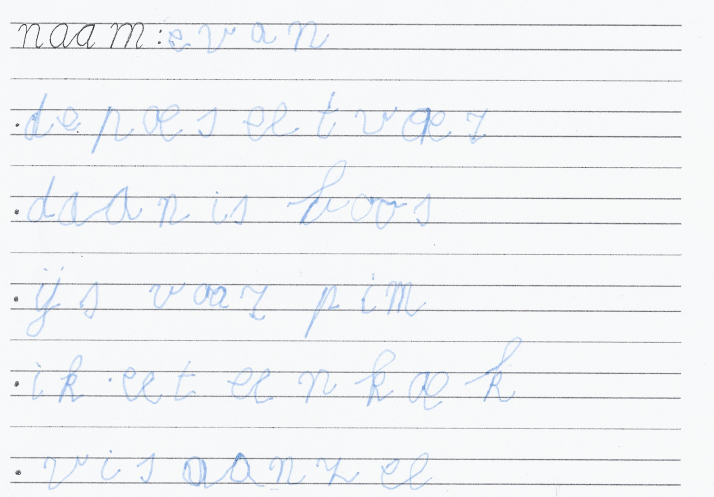 naam: evan
de poes eet voer
daan is boos
ijs voor pim
ik eet een koek
vis aan zee